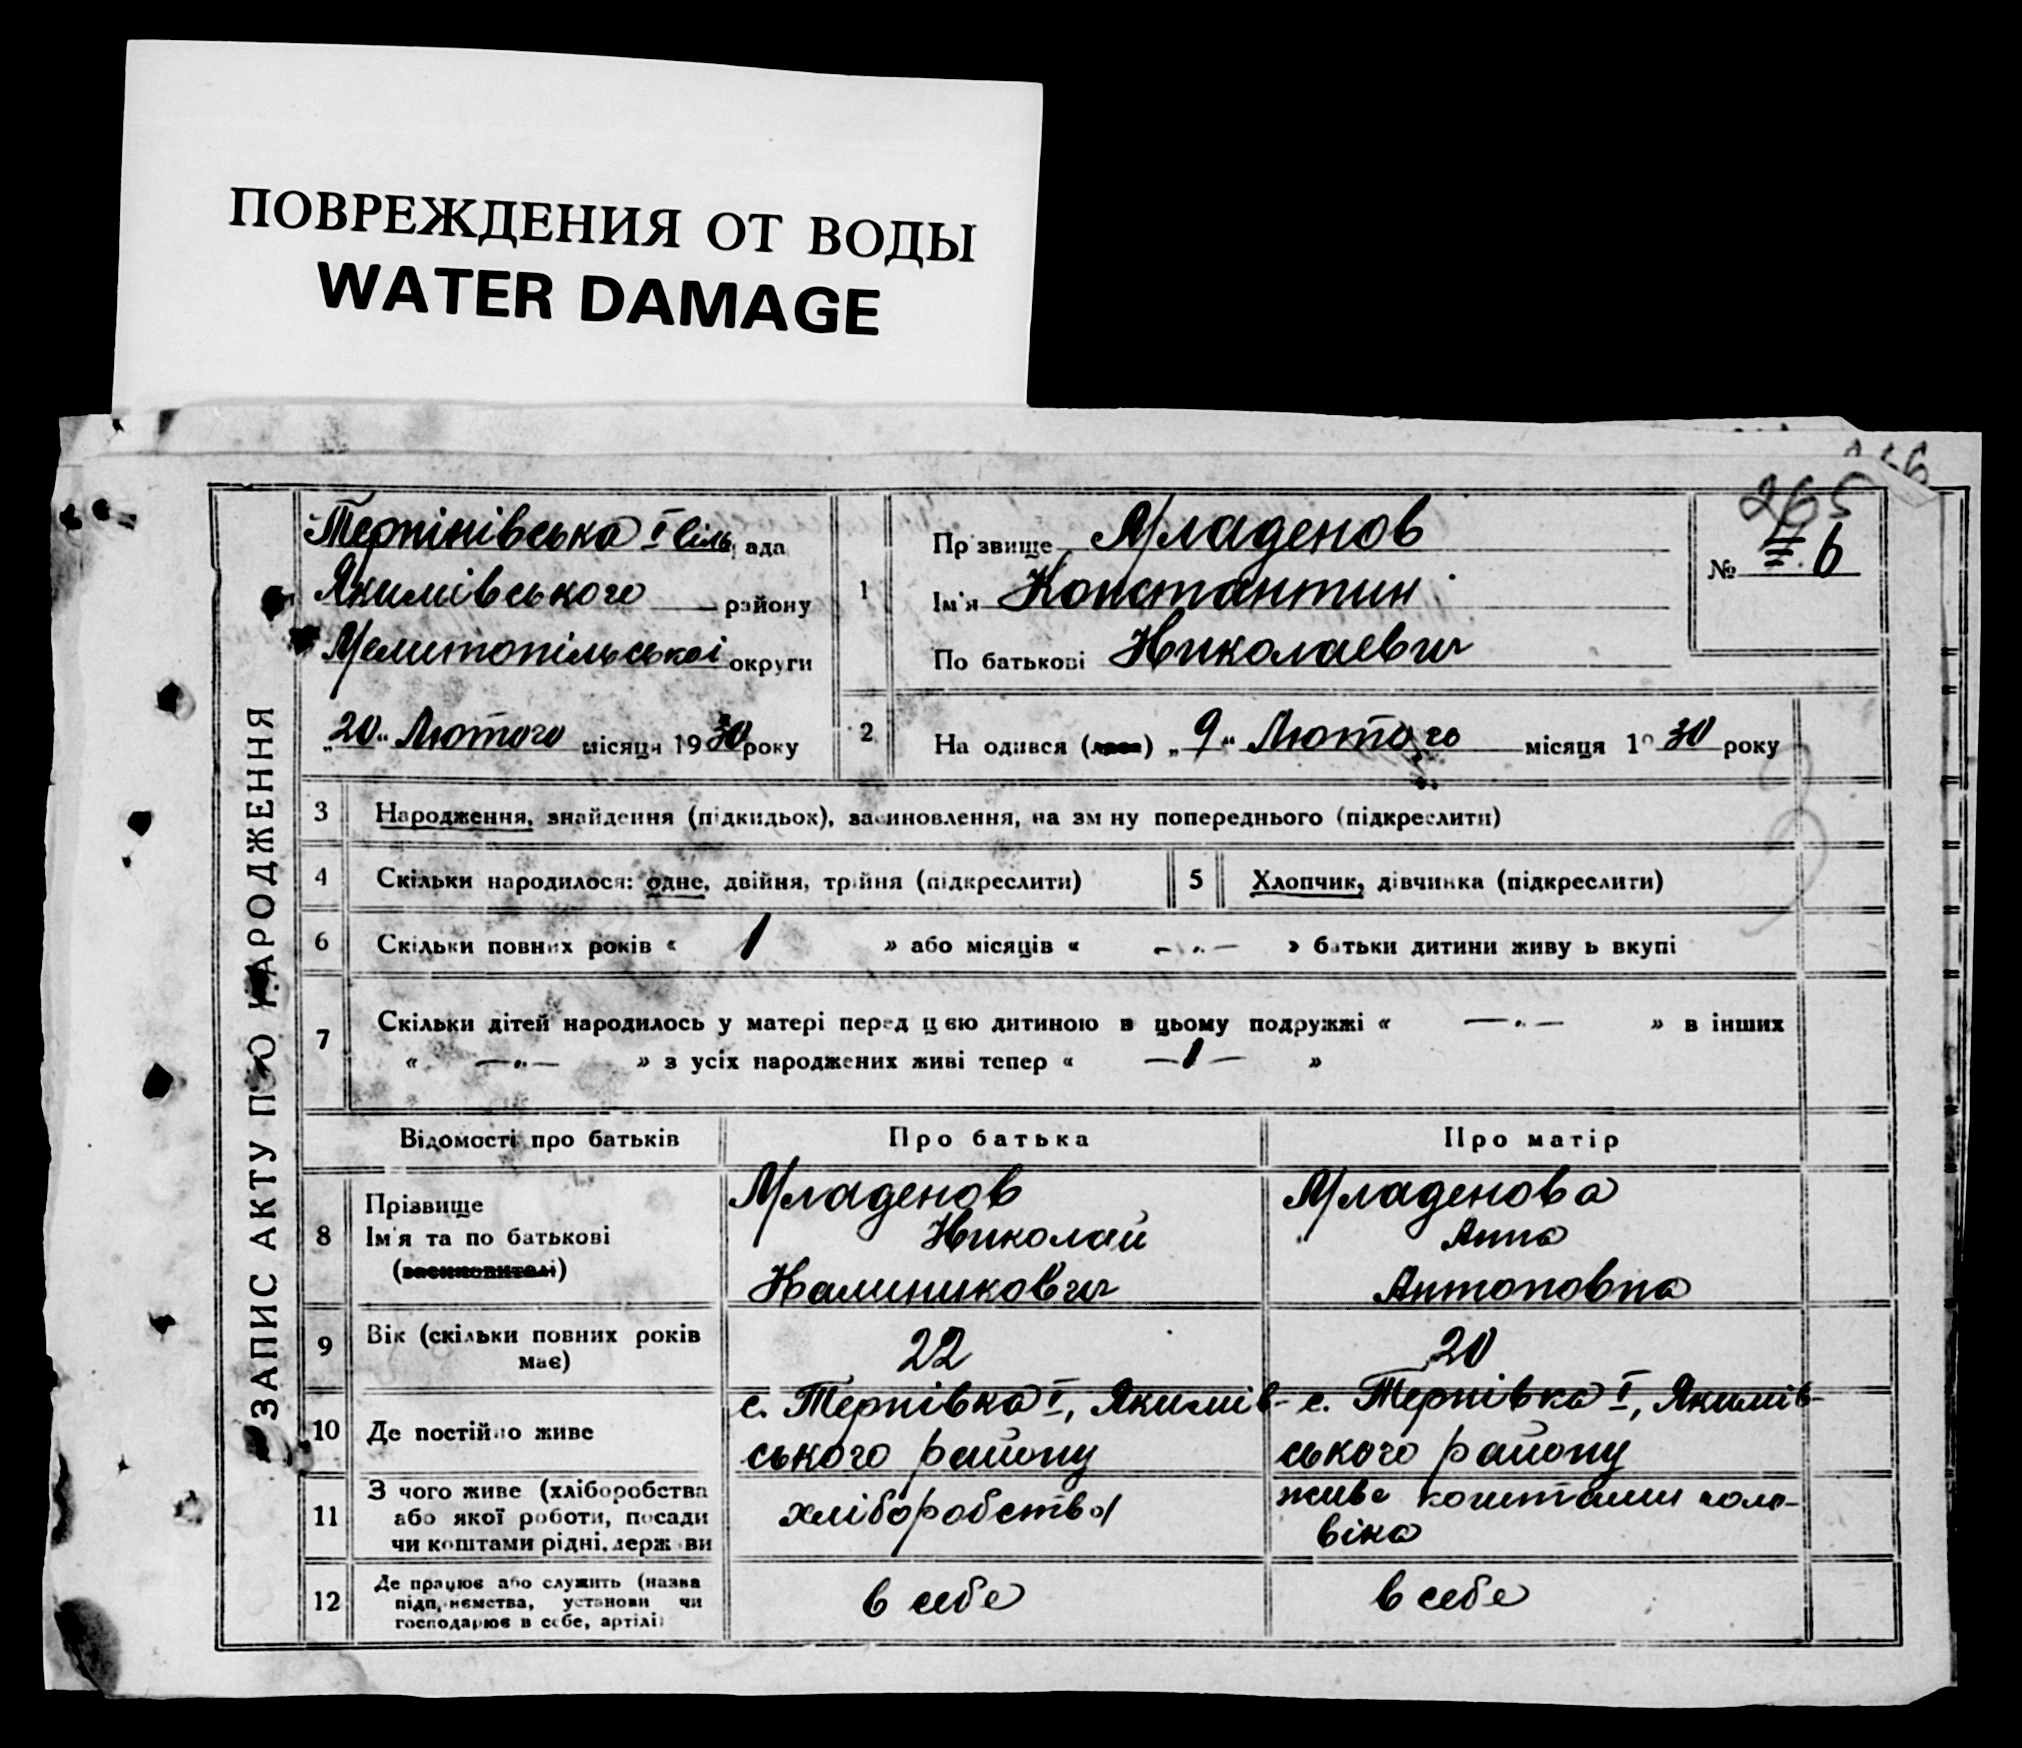 ПОВРЕЖДЕНИЯ ОТ ВОДЫ
WATER DAMAGE
265
ЗАПИС АКТУ ПРО НАРОДЖЕННЯ
Терпінівська І сільрада
Якимівського району
Мелитопільської округи
„20“ Лютого місяця 1930 року
1
Прізвище Младенов
Ім'я Константин
По батькові Николаевич
№ 6
2
Народився (лася) „9“ Лютого місяця 1930 року
3 Народження, знайдення (підкидьок), засиновлення, на зміну попереднього (підкреслити)
4 Скільки народилося: одне, двійня, трійня (підкреслити)
5 Хлопчик, дівчинка (підкреслити)
6 Скільки повних років « 1 » або місяців « —„— » батьки дитини живуть вкупі
7 Скільки дітей народилось у матері перед цією дитиною в цьому подружжі « —„— » в інших
« —„— » з усіх народжених живі тепер « —1— »
Відомості про батьків Про батька Про матір
8
Прізвище
Ім'я та по батькові
(засиновителі)
Младенов
Николай
Калиникович
Младенова
Анна
Антоновна
9
Вік (скільки повних років
має)
22
20
10
Де постійно живе
с. Терпівка І, Якимів-
ського району
с. Терпівка І, Якимів-
ського району
11
З чого живе (хліборобства
або якої роботи, посади
чи коштами рідні, держави
хліборобства
живе коштами чоло-
віка
12
Де працює або служить (назва
підприємства, установи чи
господарює в себе, артілі)
в себе
в себе